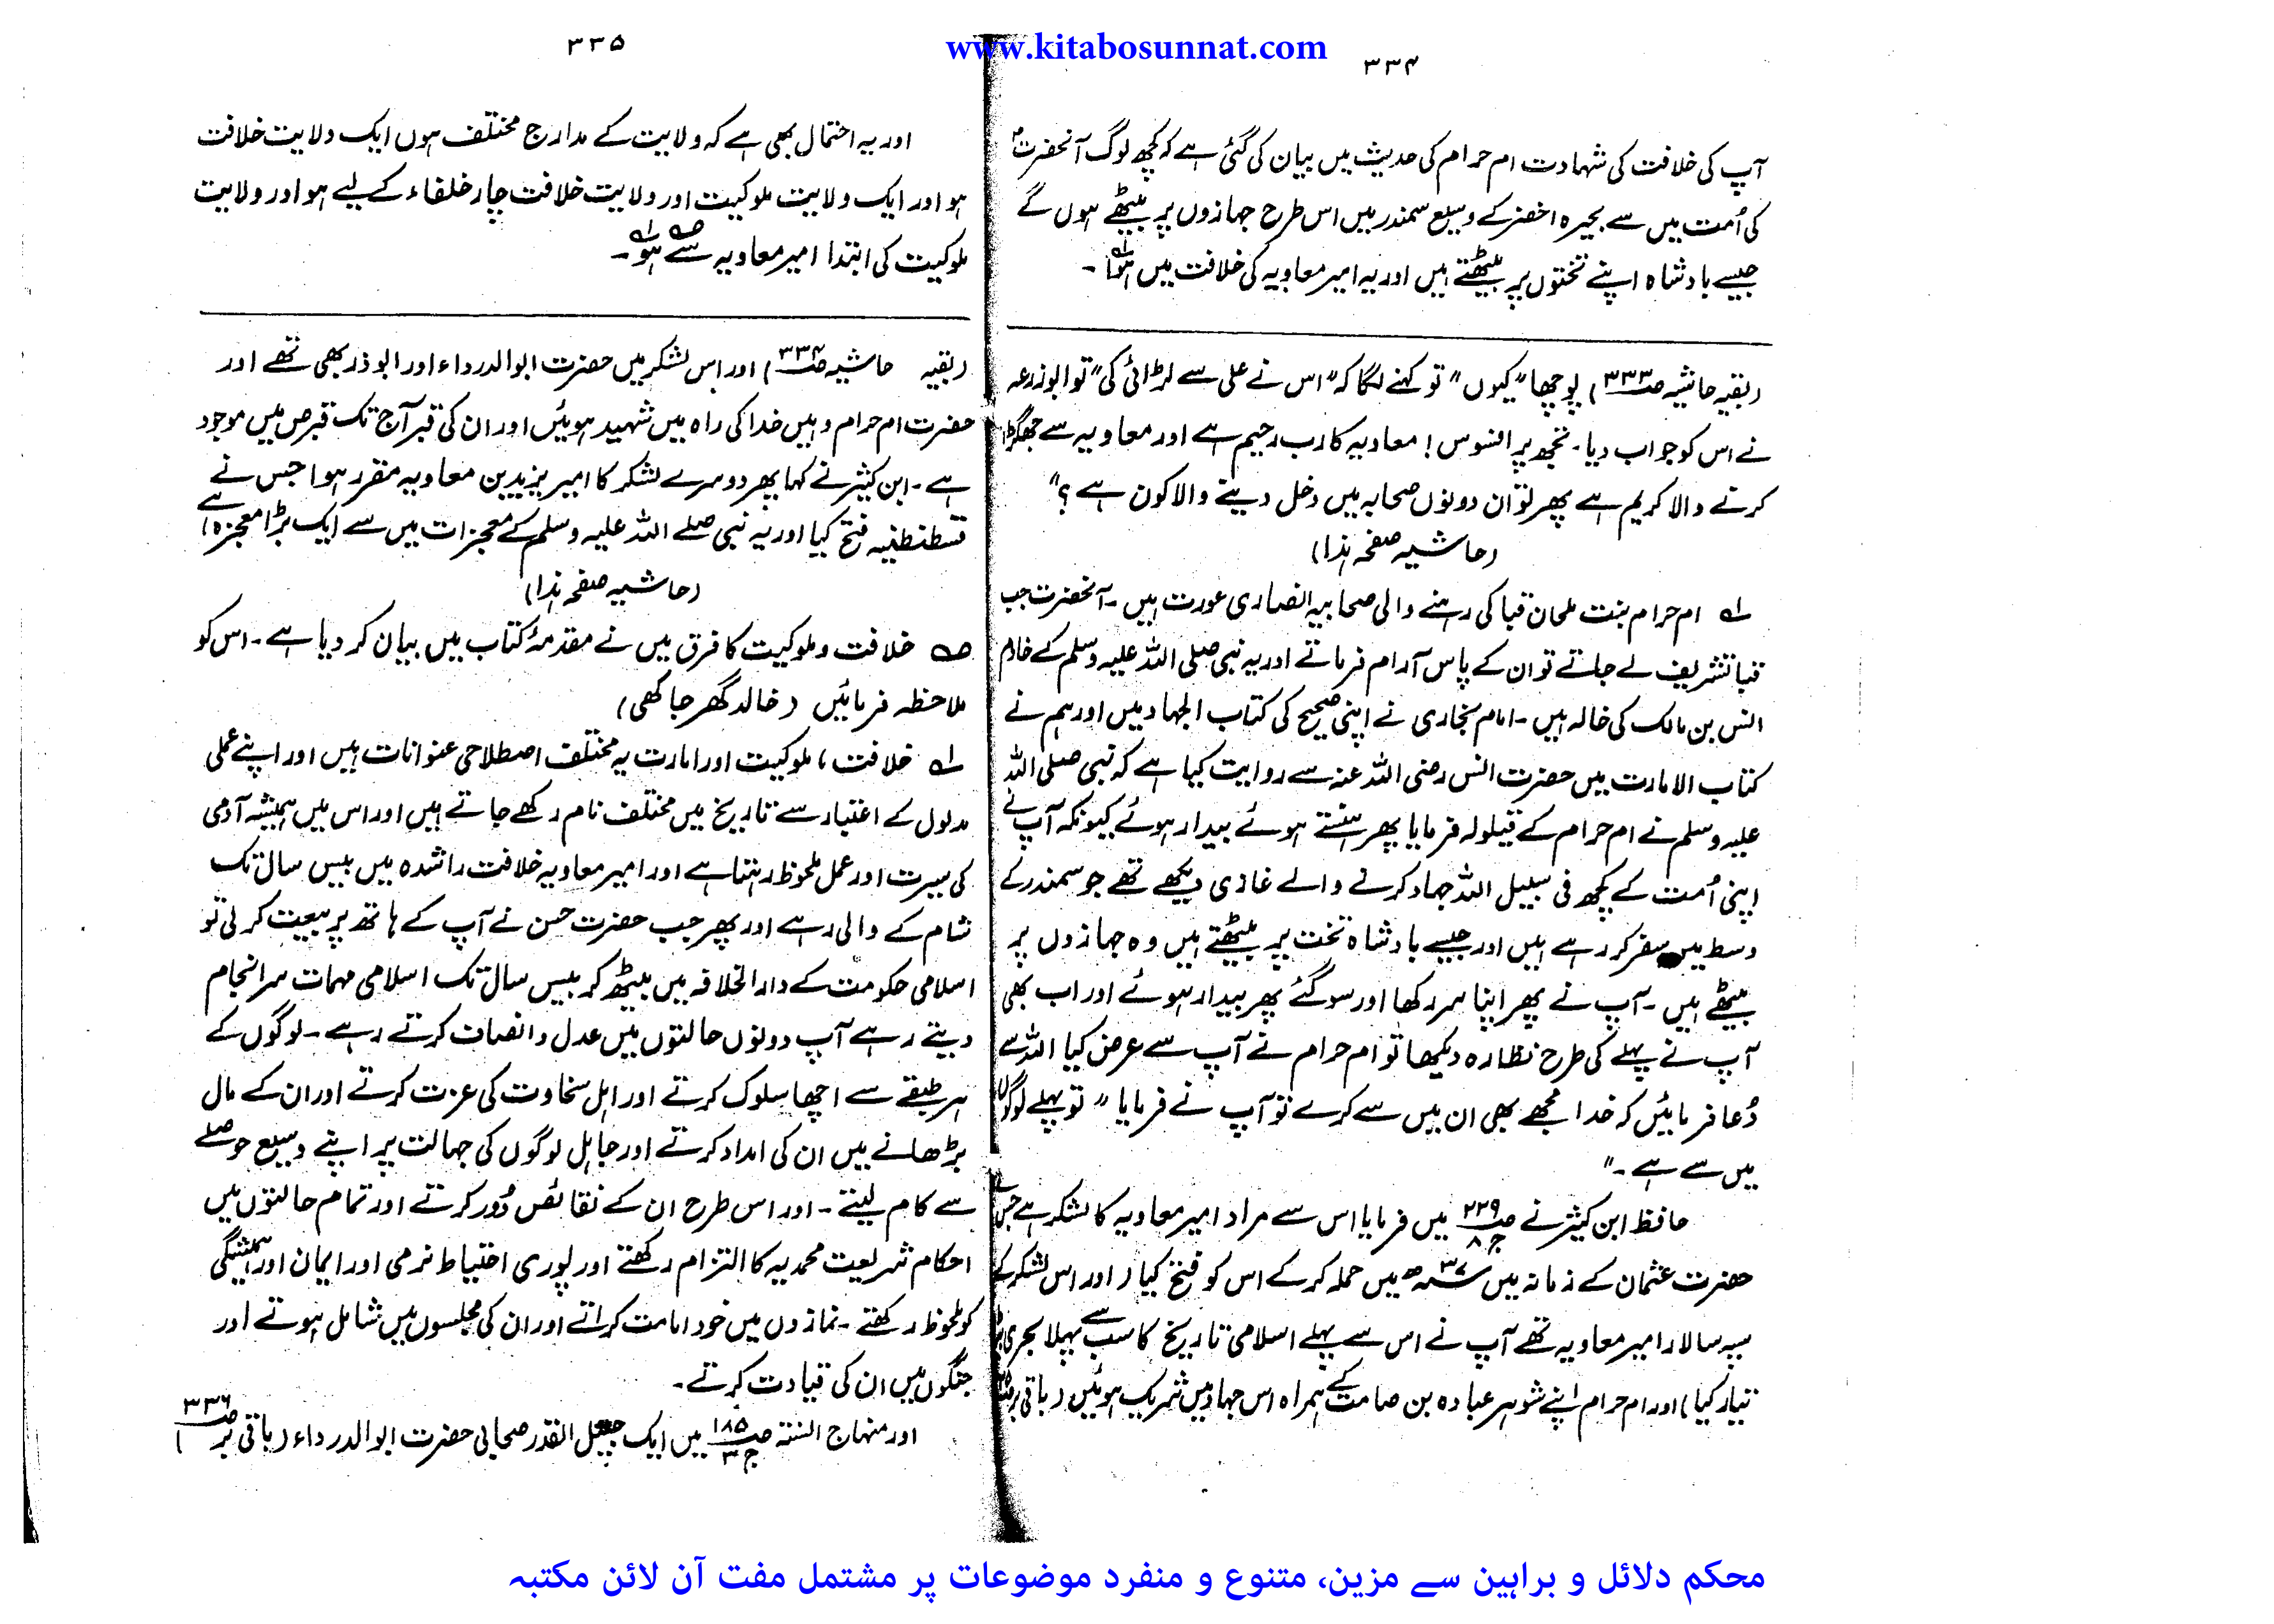 www.kitabosunnat.com
۳۳۴
آپ کی خلافت کی شہادت ام حرام کی حدیث میں بیان کی گئی ہے کہ کچھ لوگ آنحضرتؐ
کی اُمت میں سے بحیرہ اخضر کے وسیع سمندر میں اس طرح جہازوں پر بیٹھے ہوں گے
جیسے بادشاہ اپنے تختوں پر بیٹھتے ہیں اور یہ امیر معاویہ کی خلافت میں ہوا لہ۔
(بقیہ حاشیہ صـ۳۳۳) پوچھا "کیوں" تو کہنے لگا کہ "اس نے علی سے لڑائی کی" تو ابوزرعہ
نے اس کو جواب دیا۔ تجھ پر افسوس! معاویہ کا رب رحیم ہے اور معاویہ سے جھگڑا
کرنے والا کریم ہے پھر تو ان دونوں صحابہ میں دخل دینے والا کون ہے؟"
(حاشیہ صفحہ ہذا)
لہ ام حرام بنت ملحان قبا کی رہنے والی صحابیہ انصاری عورت ہیں۔ آنحضرت جب
قبا تشریف لے جاتے تو ان کے پاس آرام فرماتے اور یہ نبی صلی اللہ علیہ وسلم کے خادم
انس بن مالک کی خالہ ہیں۔ امام بخاری نے اپنی صحیح کی کتاب الجہاد میں اور ہم نے
کتاب الامارت میں حضرت انس رضی اللہ عنہ سے روایت کیا ہے کہ نبی صلی اللہ
علیہ وسلم نے ام حرام کے قیلولہ فرمایا پھر ہنستے ہوئے بیدار ہوئے کیونکہ آپ نے
اپنی اُمت کے کچھ فی سبیل اللہ جہاد کرنے والے غازی دیکھے تھے جو سمندر کے
وسط میں سفر کر رہے ہیں اور جیسے بادشاہ تخت پر بیٹھتے ہیں وہ جہازوں پر
بیٹھے ہیں۔ آپ نے پھر اپنا سر رکھا اور سو گئے پھر بیدار ہوئے اور اب بھی
آپ نے پہلے کی طرح نظارہ دیکھا تو ام حرام نے آپ سے عرض کیا اللہ سے
دُعا فرمائیں کہ خدا مجھے بھی ان میں سے کرے تو آپ نے فرمایا "تو پہلے لوگوں
میں سے ہے۔"
حافظ ابن کثیر نے صـ۲۲۹ ج۸ میں فرمایا اس سے مراد امیر معاویہ کا لشکر ہے جس نے
حضرت عثمان کے زمانہ میں ۲۷ھ میں حملہ کر کے اس کو فتح کیا (اور اس لشکر کے
سپہ سالار امیر معاویہ تھے آپ نے اس سے پہلے اسلامی تاریخ کا سب سے پہلا بحری
تیار کیا) اور ام حرام اپنے شوہر عبادہ بن صامت کے ہمراہ اس جہاد میں شریک ہوئیں (باقی بر
۳۳۵
اور یہ احتمال بھی ہے کہ ولایت کے مدارج مختلف ہوں ایک ولایت خلافت
ہو اور ایک ولایت ملوکیت اور ولایت خلافت چار خلفاء کے لیے ہو اور ولایت
ملوکیت کی ابتدا امیر معاویہ سے صہ ہو لہ۔
(بقیہ حاشیہ صـ۳۳۴) اور اس لشکر میں حضرت ابوالدرداء اور ابوذر بھی تھے اور
حضرت ام حرام وہیں خدا کی راہ میں شہید ہوئیں اور ان کی قبر آج تک قبرص میں موجود
ہے۔ ابن کثیر نے کہا پھر دوسرے لشکر کا امیر یزید بن معاویہ مقرر ہوا جس نے
قسطنطنیہ فتح کیا اور یہ نبی صلے اللہ علیہ وسلم کے معجزات میں سے ایک بڑا معجزہ ہے)
(حاشیہ صفحہ ہذا)
صہ خلافت و ملوکیت کا فرق میں نے مقدمۂ کتاب میں بیان کر دیا ہے۔ اس کو
ملاحظہ فرمائیں (خالد گھرجاکھی)
لہ خلافت، ملوکیت اور امارت یہ مختلف اصطلاحی عنوانات ہیں اور اپنے عملی
مدلول کے اعتبار سے تاریخ میں مختلف نام رکھے جاتے ہیں اور اس میں ہمیشہ آدمی
کی سیرت اور عمل ملحوظ رہتا ہے اور امیر معاویہ خلافت راشدہ میں بیس سال تک
شام کے والی رہے اور پھر جب حضرت حسن نے آپ کے ہاتھ پر بیعت کر لی تو
اسلامی حکومت کے دارالخلافہ میں بیٹھ کر بیس سال تک اسلامی مہمات سرانجام
دیتے رہے آپ دونوں حالتوں میں عدل و انصاف کرتے رہے۔ لوگوں کے
ہر طبقے سے اچھا سلوک کرتے اور اہل سخاوت کی عزت کرتے اور ان کے مال
بڑھانے میں ان کی امداد کرتے اور جاہل لوگوں کی جہالت پر اپنے وسیع حوصلے
سے کام لیتے۔ اور اس طرح ان کے نقائص دُور کرتے اور تمام حالتوں میں
احکام شریعت محمدیہ کا التزام رکھتے اور پوری احتیاط نرمی اور ایمان اور ہمیشگی
کو ملحوظ رکھتے۔ نمازوں میں خود امامت کراتے اور ان کی مجلسوں میں شامل ہوتے اور
جنگوں میں ان کی قیادت کرتے۔
اور منہاج السنۃ صـ۱۸۵ ج۳ میں ایک جلیل القدر صحابی حضرت ابوالدرداء (باقی بر صـ۳۳۶)
محکم دلائل و براہین سے مزین، متنوع و منفرد موضوعات پر مشتمل مفت آن لائن مکتبہ